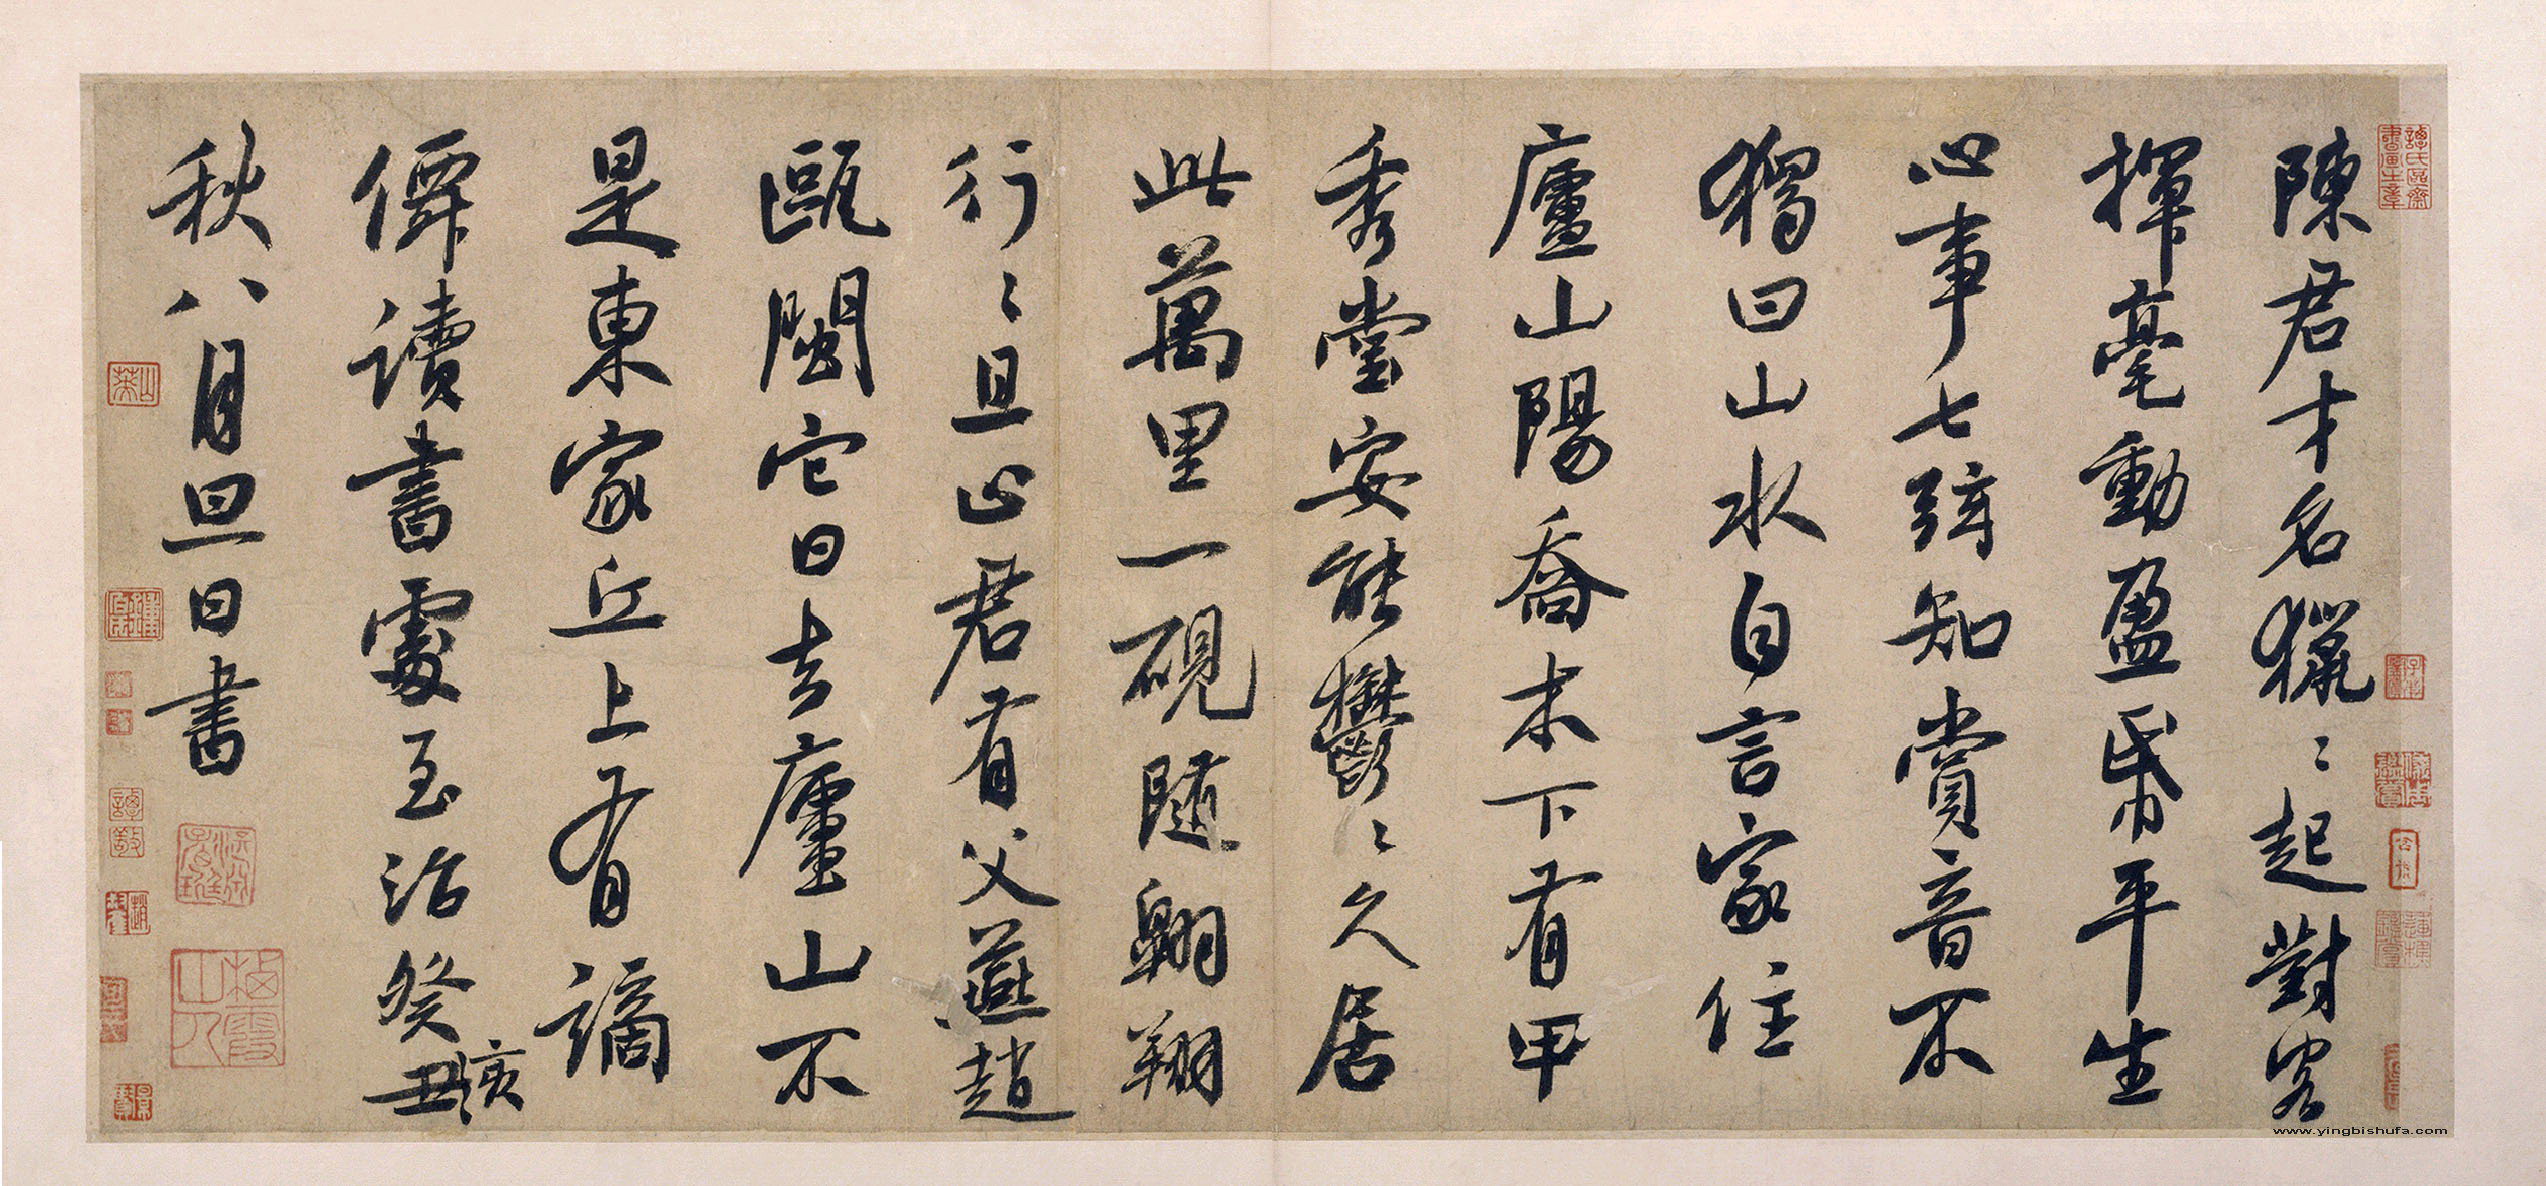 陳君才名獵〻起對客
揮毫動盈帋平生
心事七弦知賞音不
獨曰山水自言家住
廬山陽喬木下有甲
秀堂安能鬱〻久居
此萬里一硯隨翱翔
行〻且止君有父燕趙
甌閩它日去廬山不
是東家丘上有謫
僊讀書處至治癸丑亥
秋八月旦日書
www.yingbishufa.com